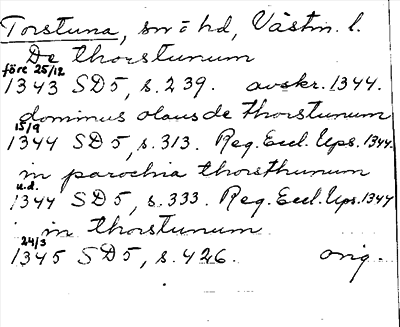 Torstuna, sn o hd, Västm. l.
De thorstunum
före 25/12
1343 SD5, s. 239. avskr. 1344.
dominus olaus de thorstunum
15/9
1344 SD5, s. 313. Reg. Eccl. Ups. 1344.
in parochia thorsthunum
u.d.
1344 SD5, s. 333. Reg. Eccl. Ups. 1344
in thorstunum
24/3
1345 SD5, s. 426. orig.